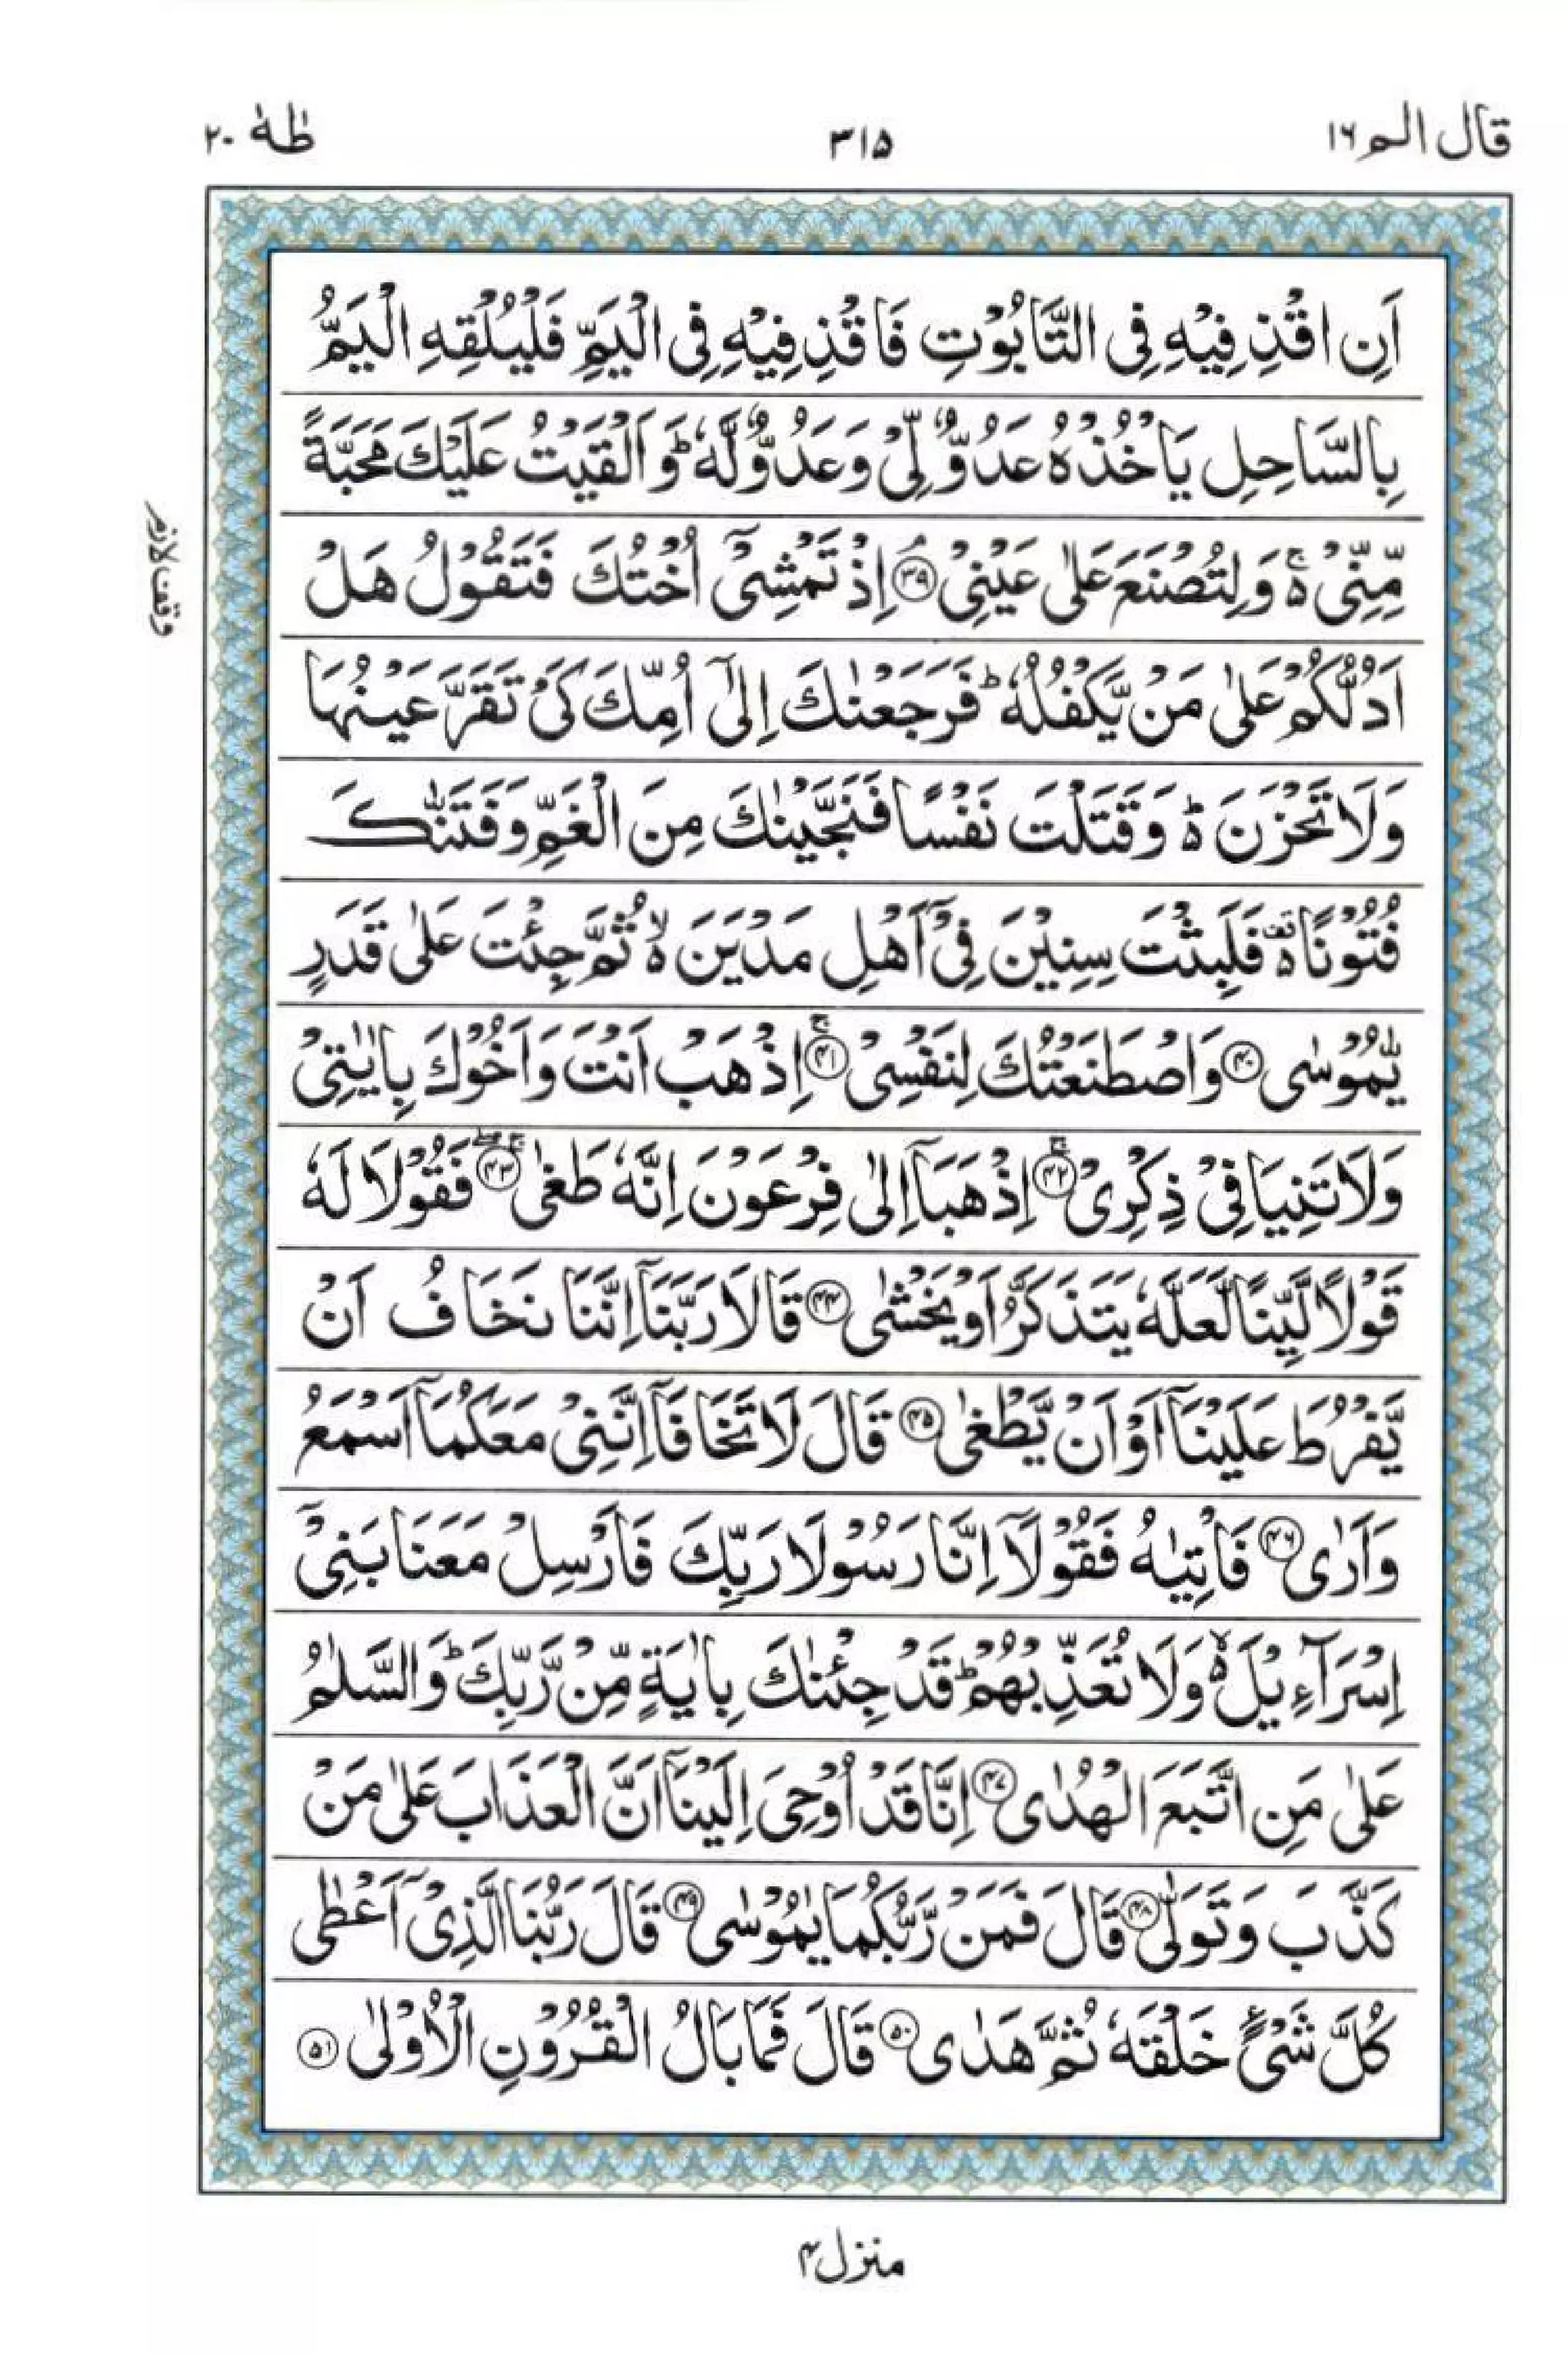 قال الم ١٦
٣١٥
طٰهٰ ٢٠
اَنِ اقْذِفِيْهِ فِى التَّابُوْتِ فَاقْذِفِيْهِ فِى الْيَمِّ فَلْيُلْقِهِ الْيَمُّ
بِالسَّاحِلِ يَاْخُذْهُ عَدُوٌّ لِّىْ وَعَدُوٌّ لَّهٗ ؕ وَاَلْقَيْتُ عَلَيْكَ مَحَبَّةً
مِّنِّىْ ۚ۬ وَلِتُصْنَعَ عَلٰى عَيْنِىْ ۘ ﴿٣٩﴾ اِذْ تَمْشِىْۤ اُخْتُكَ فَتَقُوْلُ هَلْ
اَدُلُّكُمْ عَلٰى مَنْ يَّكْفُلُهٗ ؕ فَرَجَعْنٰكَ اِلٰٓى اُمِّكَ كَىْ تَقَرَّ عَيْنُهَا
وَلَا تَحْزَنَ ۬ؕ وَقَتَلْتَ نَفْسًا فَنَجَّيْنٰكَ مِنَ الْغَمِّ وَفَتَنّٰكَ
فُتُوْنًا ۬ۚ فَلَبِثْتَ سِنِيْنَ فِىْۤ اَهْلِ مَدْيَنَ ۬ۙ ثُمَّ جِئْتَ عَلٰى قَدَرٍ
يّٰمُوْسٰى ﴿٤٠﴾ وَاصْطَنَعْتُكَ لِنَفْسِىْ ۚ ﴿٤١﴾ اِذْهَبْ اَنْتَ وَاَخُوْكَ بِاٰيٰتِىْ
وَلَا تَنِيَا فِىْ ذِكْرِىْ ۚ ﴿٤٢﴾ اِذْهَبَاۤ اِلٰى فِرْعَوْنَ اِنَّهٗ طَغٰى ۚۖ ﴿٤٣﴾ فَقُوْلَا لَهٗ
قَوْلًا لَّيِّنًا لَّعَلَّهٗ يَتَذَكَّرُ اَوْ يَخْشٰى ﴿٤٤﴾ قَالَا رَبَّنَاۤ اِنَّنَا نَخَافُ اَنْ
يَّفْرُطَ عَلَيْنَاۤ اَوْ اَنْ يَّطْغٰى ﴿٤٥﴾ قَالَ لَا تَخَافَاۤ اِنَّنِىْ مَعَكُمَاۤ اَسْمَعُ
وَاَرٰى ﴿٤٦﴾ فَاْتِيٰهُ فَقُوْلَاۤ اِنَّا رَسُوْلَا رَبِّكَ فَاَرْسِلْ مَعَنَا بَنِىْۤ
اِسْرَآءِيْلَ ۬ۙ وَلَا تُعَذِّبْهُمْ ؕ قَدْ جِئْنٰكَ بِاٰيَةٍ مِّنْ رَّبِّكَ ؕ وَالسَّلٰمُ
عَلٰى مَنِ اتَّبَعَ الْهُدٰى ﴿٤٧﴾ اِنَّا قَدْ اُوْحِىَ اِلَيْنَاۤ اَنَّ الْعَذَابَ عَلٰى مَنْ
كَذَّبَ وَتَوَلّٰى ﴿٤٨﴾ قَالَ فَمَنْ رَّبُّكُمَا يٰمُوْسٰى ﴿٤٩﴾ قَالَ رَبُّنَا الَّذِىْۤ اَعْطٰى
كُلَّ شَىْءٍ خَلْقَهٗ ثُمَّ هَدٰى ﴿٥٠﴾ قَالَ فَمَا بَالُ الْقُرُوْنِ الْاُوْلٰى ﴿٥١﴾
وقف لازم
منزل ٤